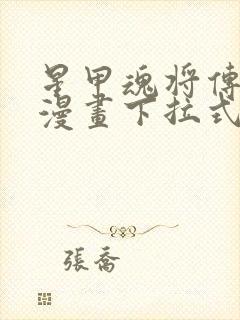 星甲魂将傳
漫畫下拉式
張喬